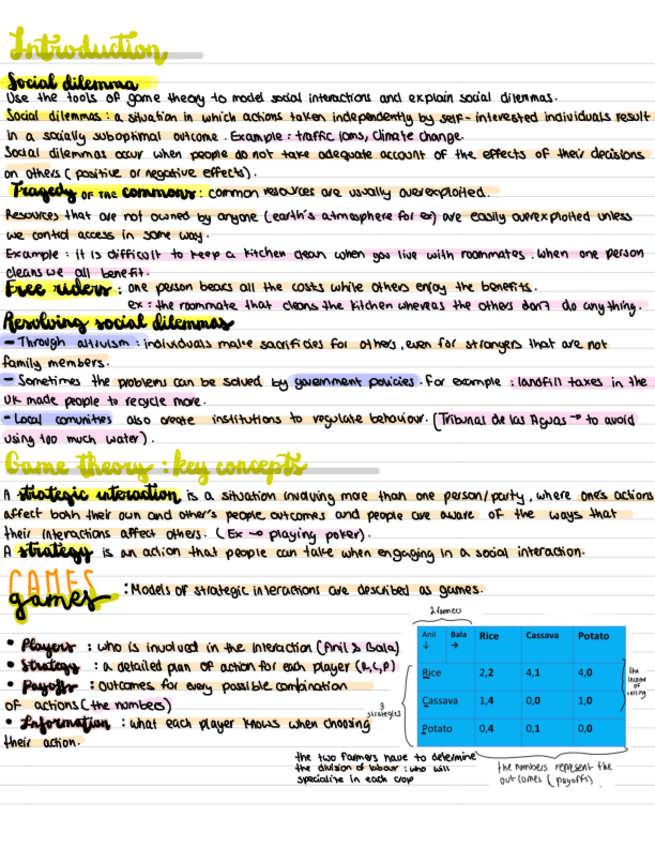 Introduction
Social dilemma
Use the tools of game theory to model social interactions and explain social dilemmas.
Social dilemmas : a situation in which actions taken independently by self-interested individuals result
in a socially suboptimal outcome. Example : traffic jams, climate change.
Social dilemmas occur when people do not take adequate account of the effects of their decisions
on others (positive or negative effects).
Tragedy OF THE commons : common resources are usually overexploited.
Resources that are not owned by anyone (earth's atmosphere for ex) are easily overexploited unless
we control access in some way.
Example : it is difficult to keep a kitchen clean when you live with roommates. When one person
cleans we all benefit.
Free riders : one person bears all the costs while others enjoy the benefits.
ex : the roommate that cleans the kitchen whereas the others don't do anything.
Resolving social dilemmas
- Through altruism : individuals make sacrificies for others, even for strangers that are not
family members.
- Sometimes the problems can be solved by government policies. For example : landfill taxes in the
UK made people to recycle more.
- Local comunities also create institutions to regulate behaviour. (Tribunal de las Aguas → to avoid
using too much water).
Game theory : key concepts
A strategic interaction is a situation involving more than one person/party, where one's actions
affect both their own and other's people outcomes and people are aware of the ways that
their interactions affect others. (Ex → playing poker).
A strategy is an action that people can take when engaging in a social interaction.
GAMES
games : Models of strategic interactions are described as games.
• Players : who is involved in the interaction (Anil & Bala)
• Strategy : a detailed plan of action for each player (R,C,P)
• Payoffs : outcomes for every possible combination
of actions (the numbers)
• Information : what each player knows when choosing
their action.
2 farmers
Anil ↓ Bala → Rice Cassava Potato
Rice 2,2 4,1 4,0
Cassava 1,4 0,0 1,0
Potato 0,4 0,1 0,0
3 strategies
the
income
of
selling
the two farmers have to determine
the division of labour : who will
specialize in each crop
the numbers represent the
outcomes (payoffs)